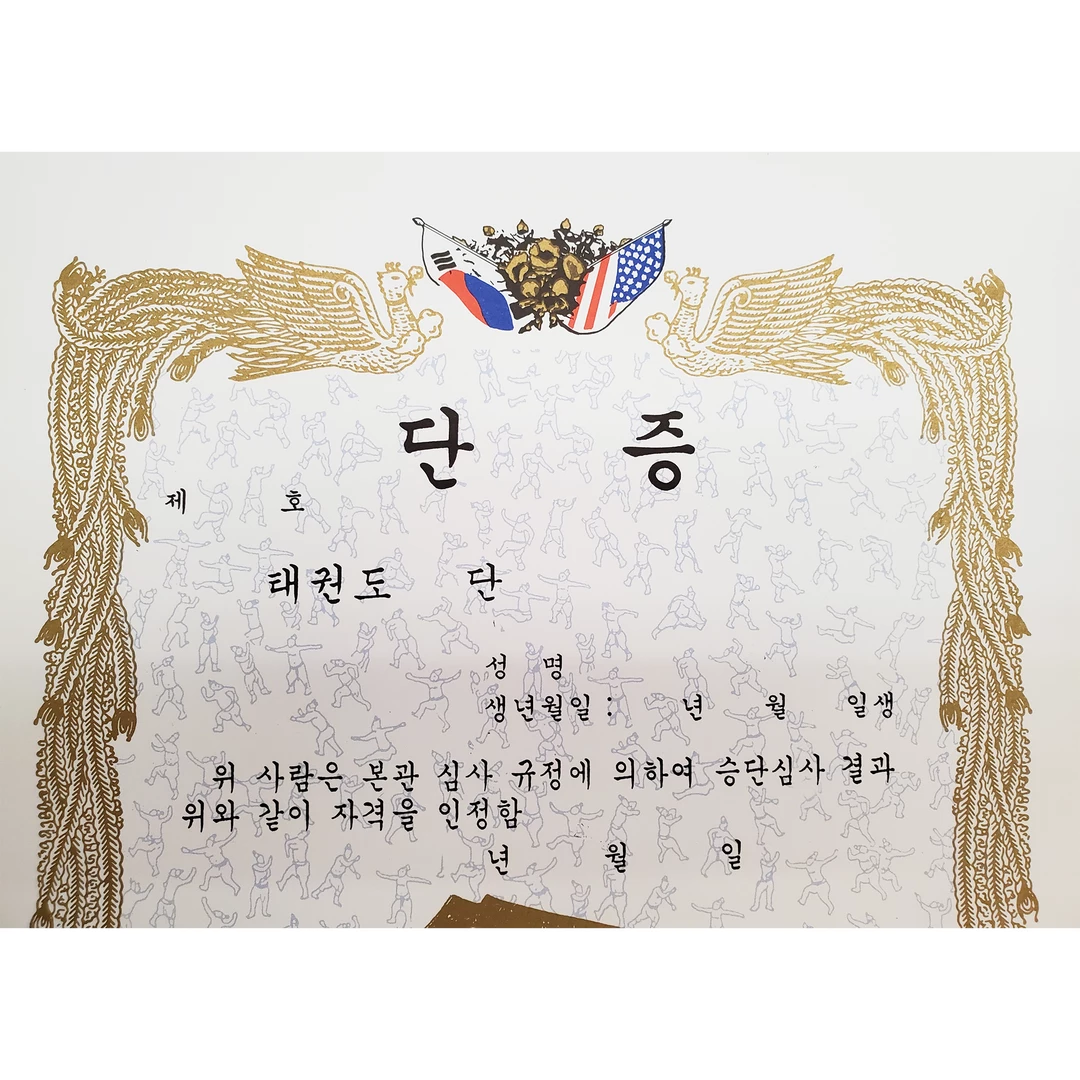 단 증
제 호
태권도 단
성 명
생년월일 : 년 월 일생
위 사람은 본관 심사 규정에 의하여 승단심사 결과
위와 같이 자격을 인정함
년 월 일